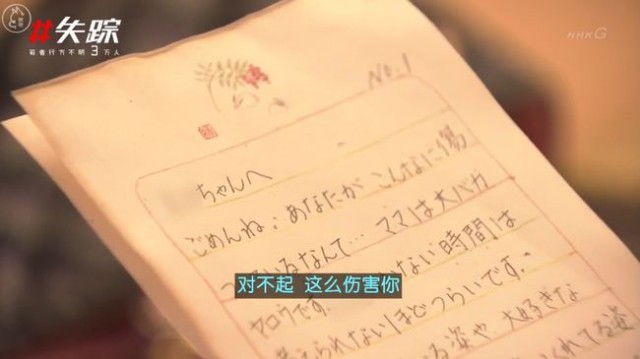 #失踪
若者行方不明3万人
NHK G
No.1
ちゃんへ
ごめんね：あなたが こんなに傷
いるなんて… ママは大バカ
ヤロウです。 ない時間は
对不起 这么伤害你
られないほどつらいです。
る姿や、大好きな
れてる姿